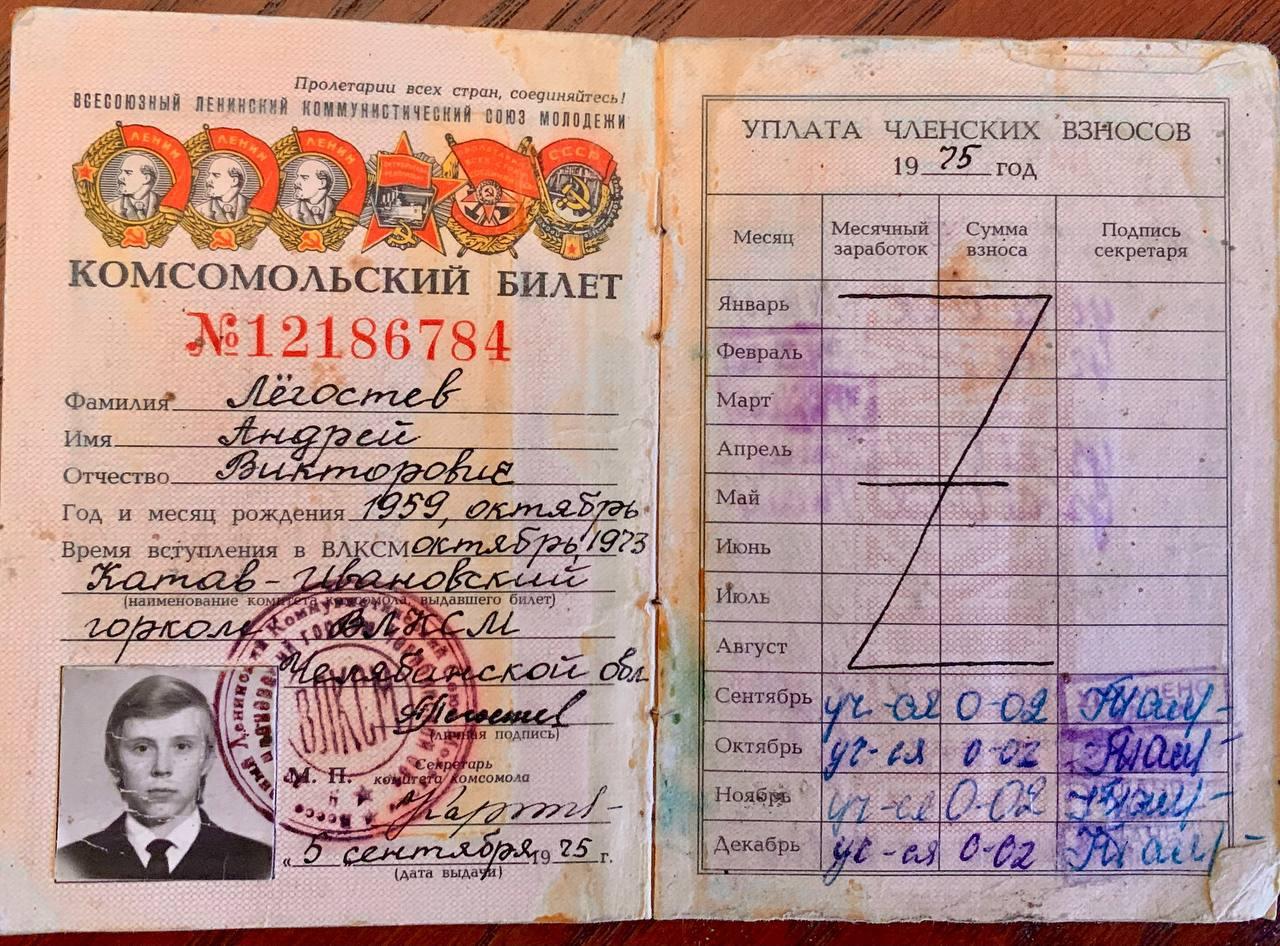 Пролетарии всех стран, соединяйтесь!
ВСЕСОЮЗНЫЙ ЛЕНИНСКИЙ КОММУНИСТИЧЕСКИЙ СОЮЗ МОЛОДЕЖИ
ЛЕНИН ЛЕНИН ЛЕНИН СССР
КОМСОМОЛЬСКИЙ БИЛЕТ
№12186784
Фамилия Лёгостев
Имя Андрей
Отчество Викторович
Год и месяц рождения 1959, октябрь
Время вступления в ВЛКСМ октябрь, 1973
Катав-Ивановский
(наименование комитета комсомола, выдавшего билет)
горком ВЛКСМ
Челябинской обл
ВЛКСМ
(личная подпись)
Секретарь
М. П. комитета комсомола
"5 сентября 1975 г.
(дата выдачи)
УПЛАТА ЧЛЕНСКИХ ВЗНОСОВ
1975 год
Месяц Месячный заработок Сумма взноса Подпись секретаря
Январь
Февраль
Март
Апрель
Май
Июнь
Июль
Август
Сентябрь уч-ся 0-02
Октябрь уч-ся 0-02
Ноябрь уч-ся 0-02
Декабрь уч-ся 0-02